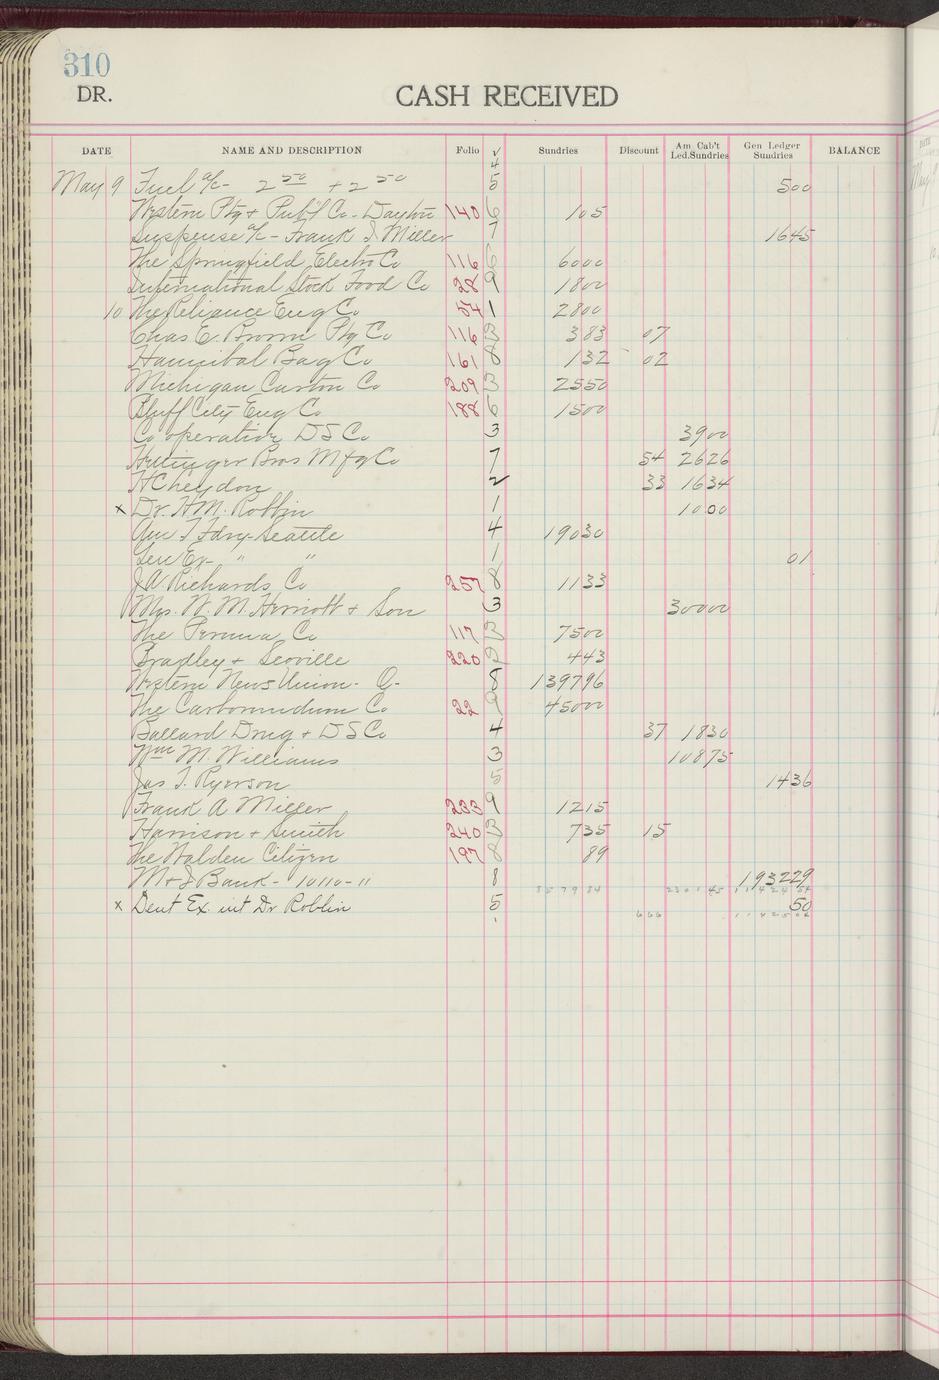 310
DR.
CASH RECEIVED
DATE NAME AND DESCRIPTION Folio √ Sundries Discount Am Cab't Led.Sundries Gen Ledger Sundries BALANCE
4
May 9 Fuel a/c - 2 50 + 2 50 5 500
Western Ptg & Pub'l Co - Dayton 140 6 105
Suspense a/c - Frank J Miller 7 1645
The Springfield Electro Co 116 6 6000
International Stock Food Co 28 9 1800
10 The Reliance Eng Co 54 1 2800
Chas E. Brown Ptg Co 116 B 383 07
Hannibal Bag Co 161 8 132 02
Michigan Carton Co 209 B 2550
Bluff City Eng Co 188 6 1500
Co operative D S Co 3 3900
Bros Mfg Co 7 54 2626
H C 2 33 1634
x Dr. H.M. Roblin 1 1000
Am T Fdry - Seattle 4 19030
Gen Ex - " " 1 01
J.A. Richards Co 257 8 1133
Mrs. W. M. Herriott & Son 3 30000
The Peruna Co 117 B 7500
Bradley & Scoville 220 2 443
Western News Union - O - 8 139796
The Carborundum Co 22 9 45000
Ballard Drug & D S Co 4 37 1830
Wm M. Williams 3 10875
Jos T. Ryerson 5 1436
Frank A Miller 233 9 1215
Harrison & Smith 240 B 735 15
The Walden Citizen 197 8 89
M & J Bank - 10110 - 11 8 193229
x Dent Ex. int Dr Roblin 5 50
666